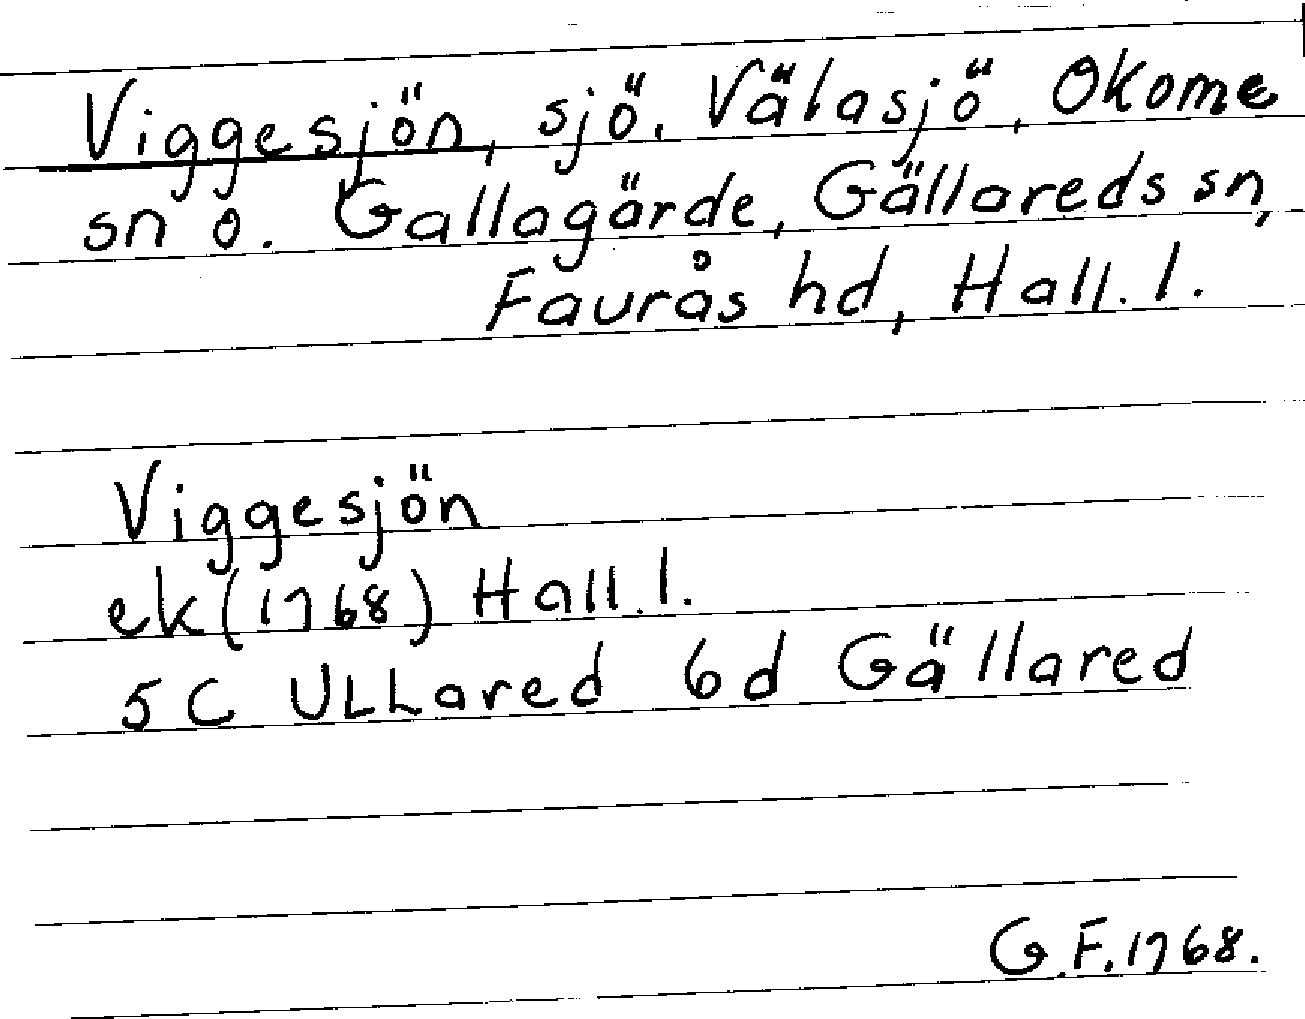 Viggesjön, sjö. Välasjö, Okome
sn o. Gallagärde, Gällareds sn,
Faurås hd, Hall. l.
Viggesjön
ek (1768) Hall. l.
5C Ullared 6d Gällared
G.F. 1768.